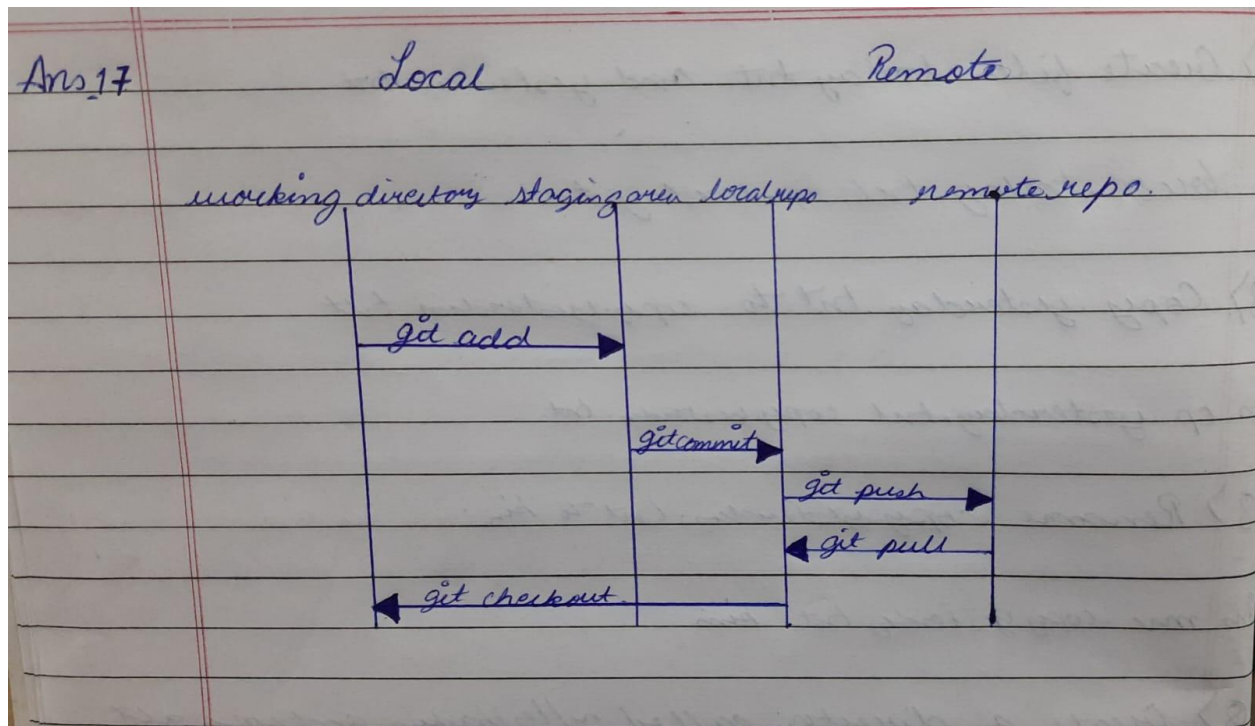 Ans 17 Local Remote
working directory staging area local repo remote repo.
git add
git commit
git push
git pull
git checkout